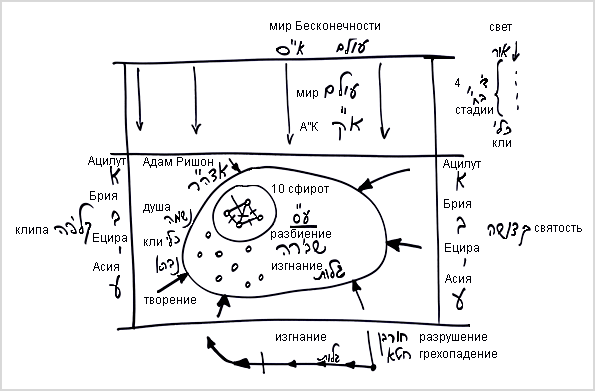 мир Бесконечности
свет
עולם א"ס
אור
4 ד' בח'
стадии
мир עולם
А"К א"ק
כלי
кли
Ацилут
א
Брия
ב
Ецира
י
Асия
ע
клипа קליפה
Адам Ришон
אדה"ר
10 сфирот
ע"ס
душа נשמה
кли כלי
נברא
творение
разбиение
שבירה
изгнание
גלות
Ацилут
א
Брия
ב
Ецира
י
Асия
ע
קדושה святость
изгнание
גלות
חורבן разрушение
חטא грехопадение